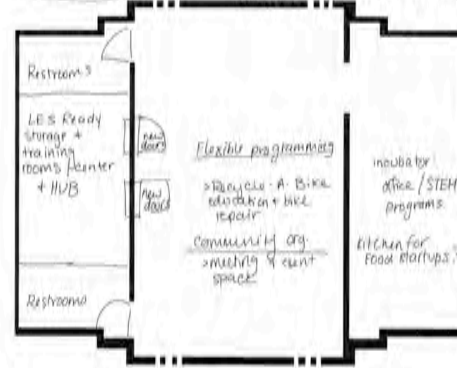 Restrooms
LES Ready
storage +
training
rooms/center
+ HUB
Restrooms
new
doors
new
doors
Flexible programming
>Recycle-A-Bike
education + bike
repair
Community org.
>meeting & event
space
incubator
office / STEM
programs
kitchen for
Food startups.